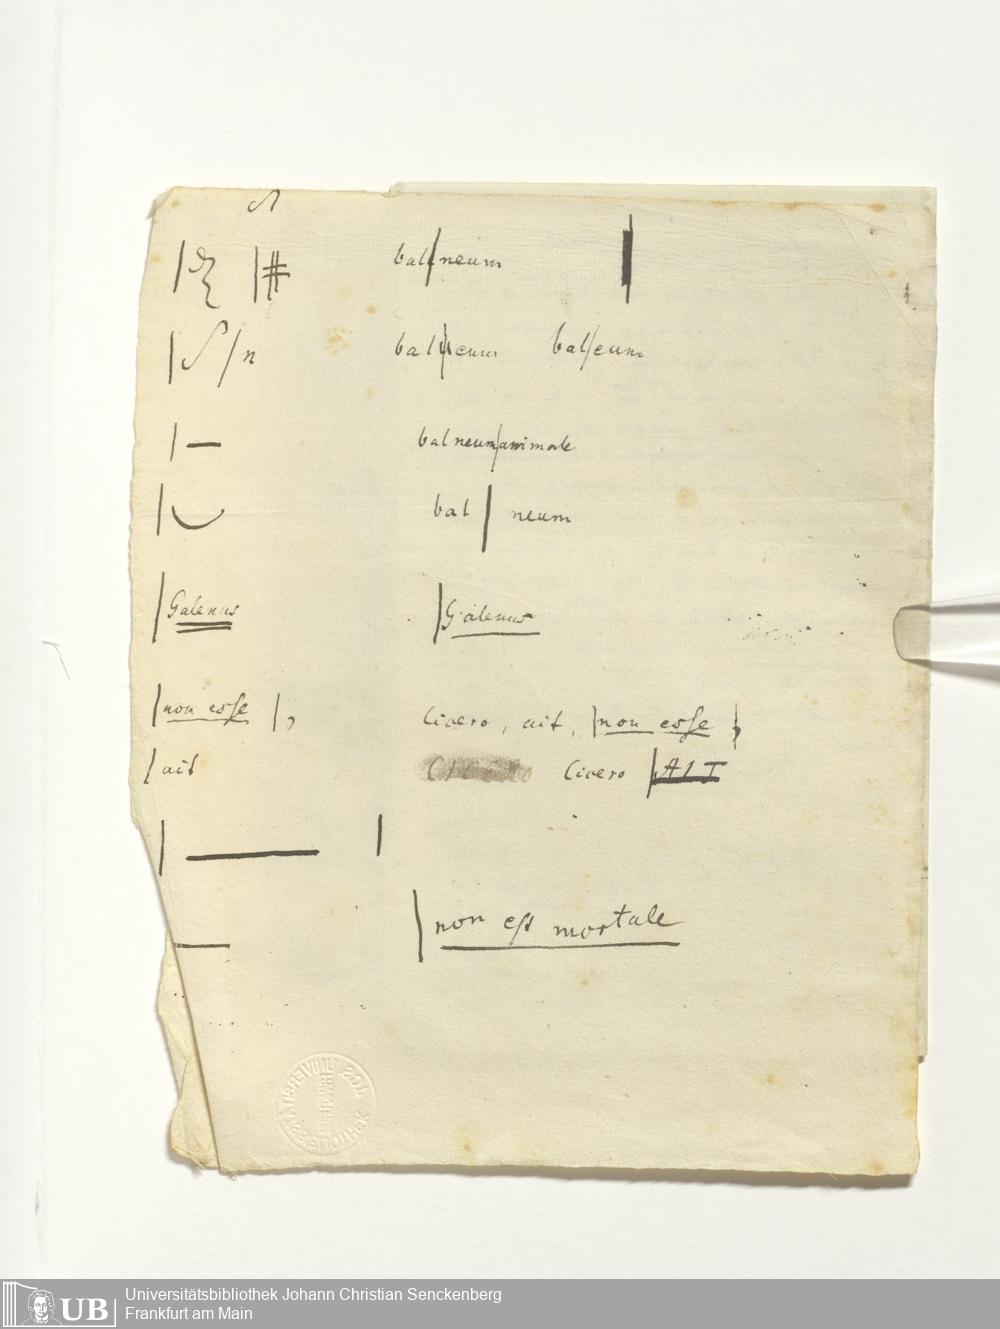 | # bal|neum |
| /n bal|neum bal/eum
| — balneum|animale
| ‿ bal | neum
|Galenus |Galenus
|non esse |, Cicero, ait, |non esse|,
|ait Cicero |AIT
| — |
|non est mortale
—
Universitätsbibliothek Johann Christian Senckenberg
UB Frankfurt am Main